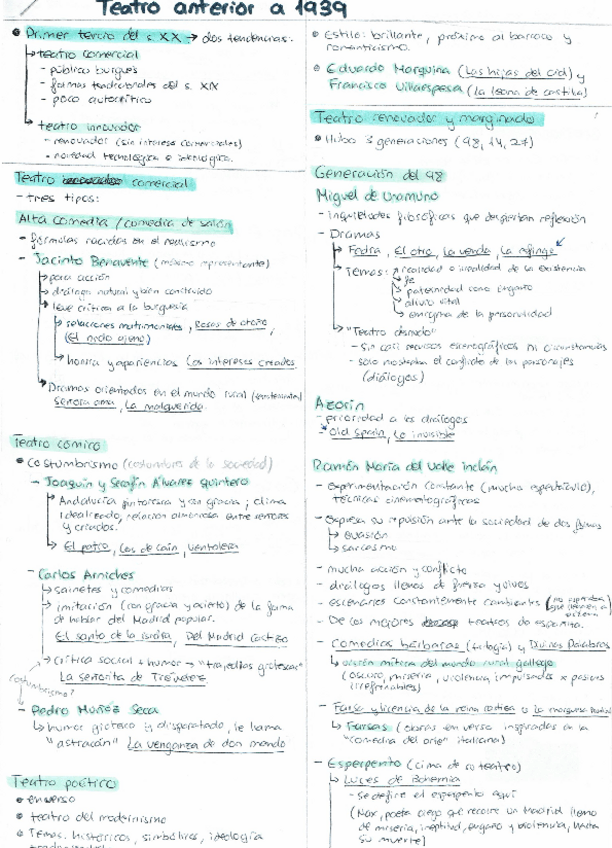 Teatro anterior a 1939
• Primer tercio del s. XX → dos tendencias:
↳ teatro comercial
- público burgués
- formas tradicionales del s. XIX
- poco autocrítico
↳ teatro innovador
- renovador (sin intereses comerciales)
- novedad tecnológica e ideológica.
Teatro comercial
- tres tipos:
Alta comedia / comedia de salón
- fórmulas nacidas en el realismo
- Jacinto Benavente (máximo representante)
↳ poca acción
↳ diálogo natural y bien construido
↳ leve crítica a la burguesía
↳ relaciones matrimoniales, Rosas de otoño,
(El nido ajeno)
↳ honra y apariencias Los intereses creados
↳ Dramas orientados en el mundo rural
Señora ama, La malquerida.
Teatro cómico
• Costumbrismo (costumbres de la sociedad)
- Joaquín y Serafín Álvarez Quintero
↳ Andalucía pintoresca y con gracia; clima
idealizado, relación amorosa entre señores
y criados.
↳ El patio, Las de Caín, Ventolera
- Carlos Arniches
↳ sainetes y comedias
↳ imitación (con gracia y acierto) de la forma
de hablar del Madrid popular.
El santo de la Isidra, Del Madrid castizo
↳ crítica social + humor → "tragedias grotescas"
La señorita de Trévelez
costumbrismo?
- Pedro Muñoz Seca
↳ humor grotesco y disparatado, le llama
"astracán" La venganza de don Mendo
Teatro poético
• en verso
• teatro del modernismo
• Temas: históricos, simbólicos, ideología
• Estilo: brillante, próximo al barroco y
romanticismo.
• Eduardo Marquina (Las hijas del Cid) y
Francisco Villaespesa (La leona de Castilla)
Teatro renovador y marginado
• Hubo 3 generaciones (98, 14, 27)
Generación del 98
Miguel de Unamuno
- inquietudes filosóficas que despiertan reflexión
- Dramas
↳ Fedra, El otro, La venda, La esfinge
↳ Temas: realidad o irrealidad de la existencia
↳ fe
↳ paternidad como
↳ vital
↳ enigma de la personalidad
↳ "Teatro desnudo"
- Sin casi recursos escenográficos ni circunstancias
- solo mostraba el conflicto de los personajes
(diálogos)
Azorín
- prioridad a los diálogos
- Old Spain, Lo invisible
Ramón María del Valle Inclán
- experimentación constante (mucho espectáculo),
técnicas cinematográficas
- Expresa su repulsión ante la sociedad de dos formas
↳ evasión
↳ sarcasmo
- mucha acción y conflicto
- diálogos llenos de fuerza y vivos
- escenarios constantemente cambiantes
- De los mejores teatros de España.
- Comedias bárbaras (trilogía) y Divinas Palabras
↳ visión mítica del mundo rural gallego
(oscuro, miseria, violencia, impulsados x pasiones
irrefrenables)
- Farsa y licencia de la reina castiza o La marquesa Rosalinda
↳ Farsas (obras en verso inspiradas en la
"comedia del arte" italiana)
- Esperpento (cima de su teatro)
↳ Luces de Bohemia
- Se define el esperpento aquí
(Max, poeta ciego que recorre un Madrid lleno
de miseria, ineptitud, engaño y violencia, hasta
su muerte)